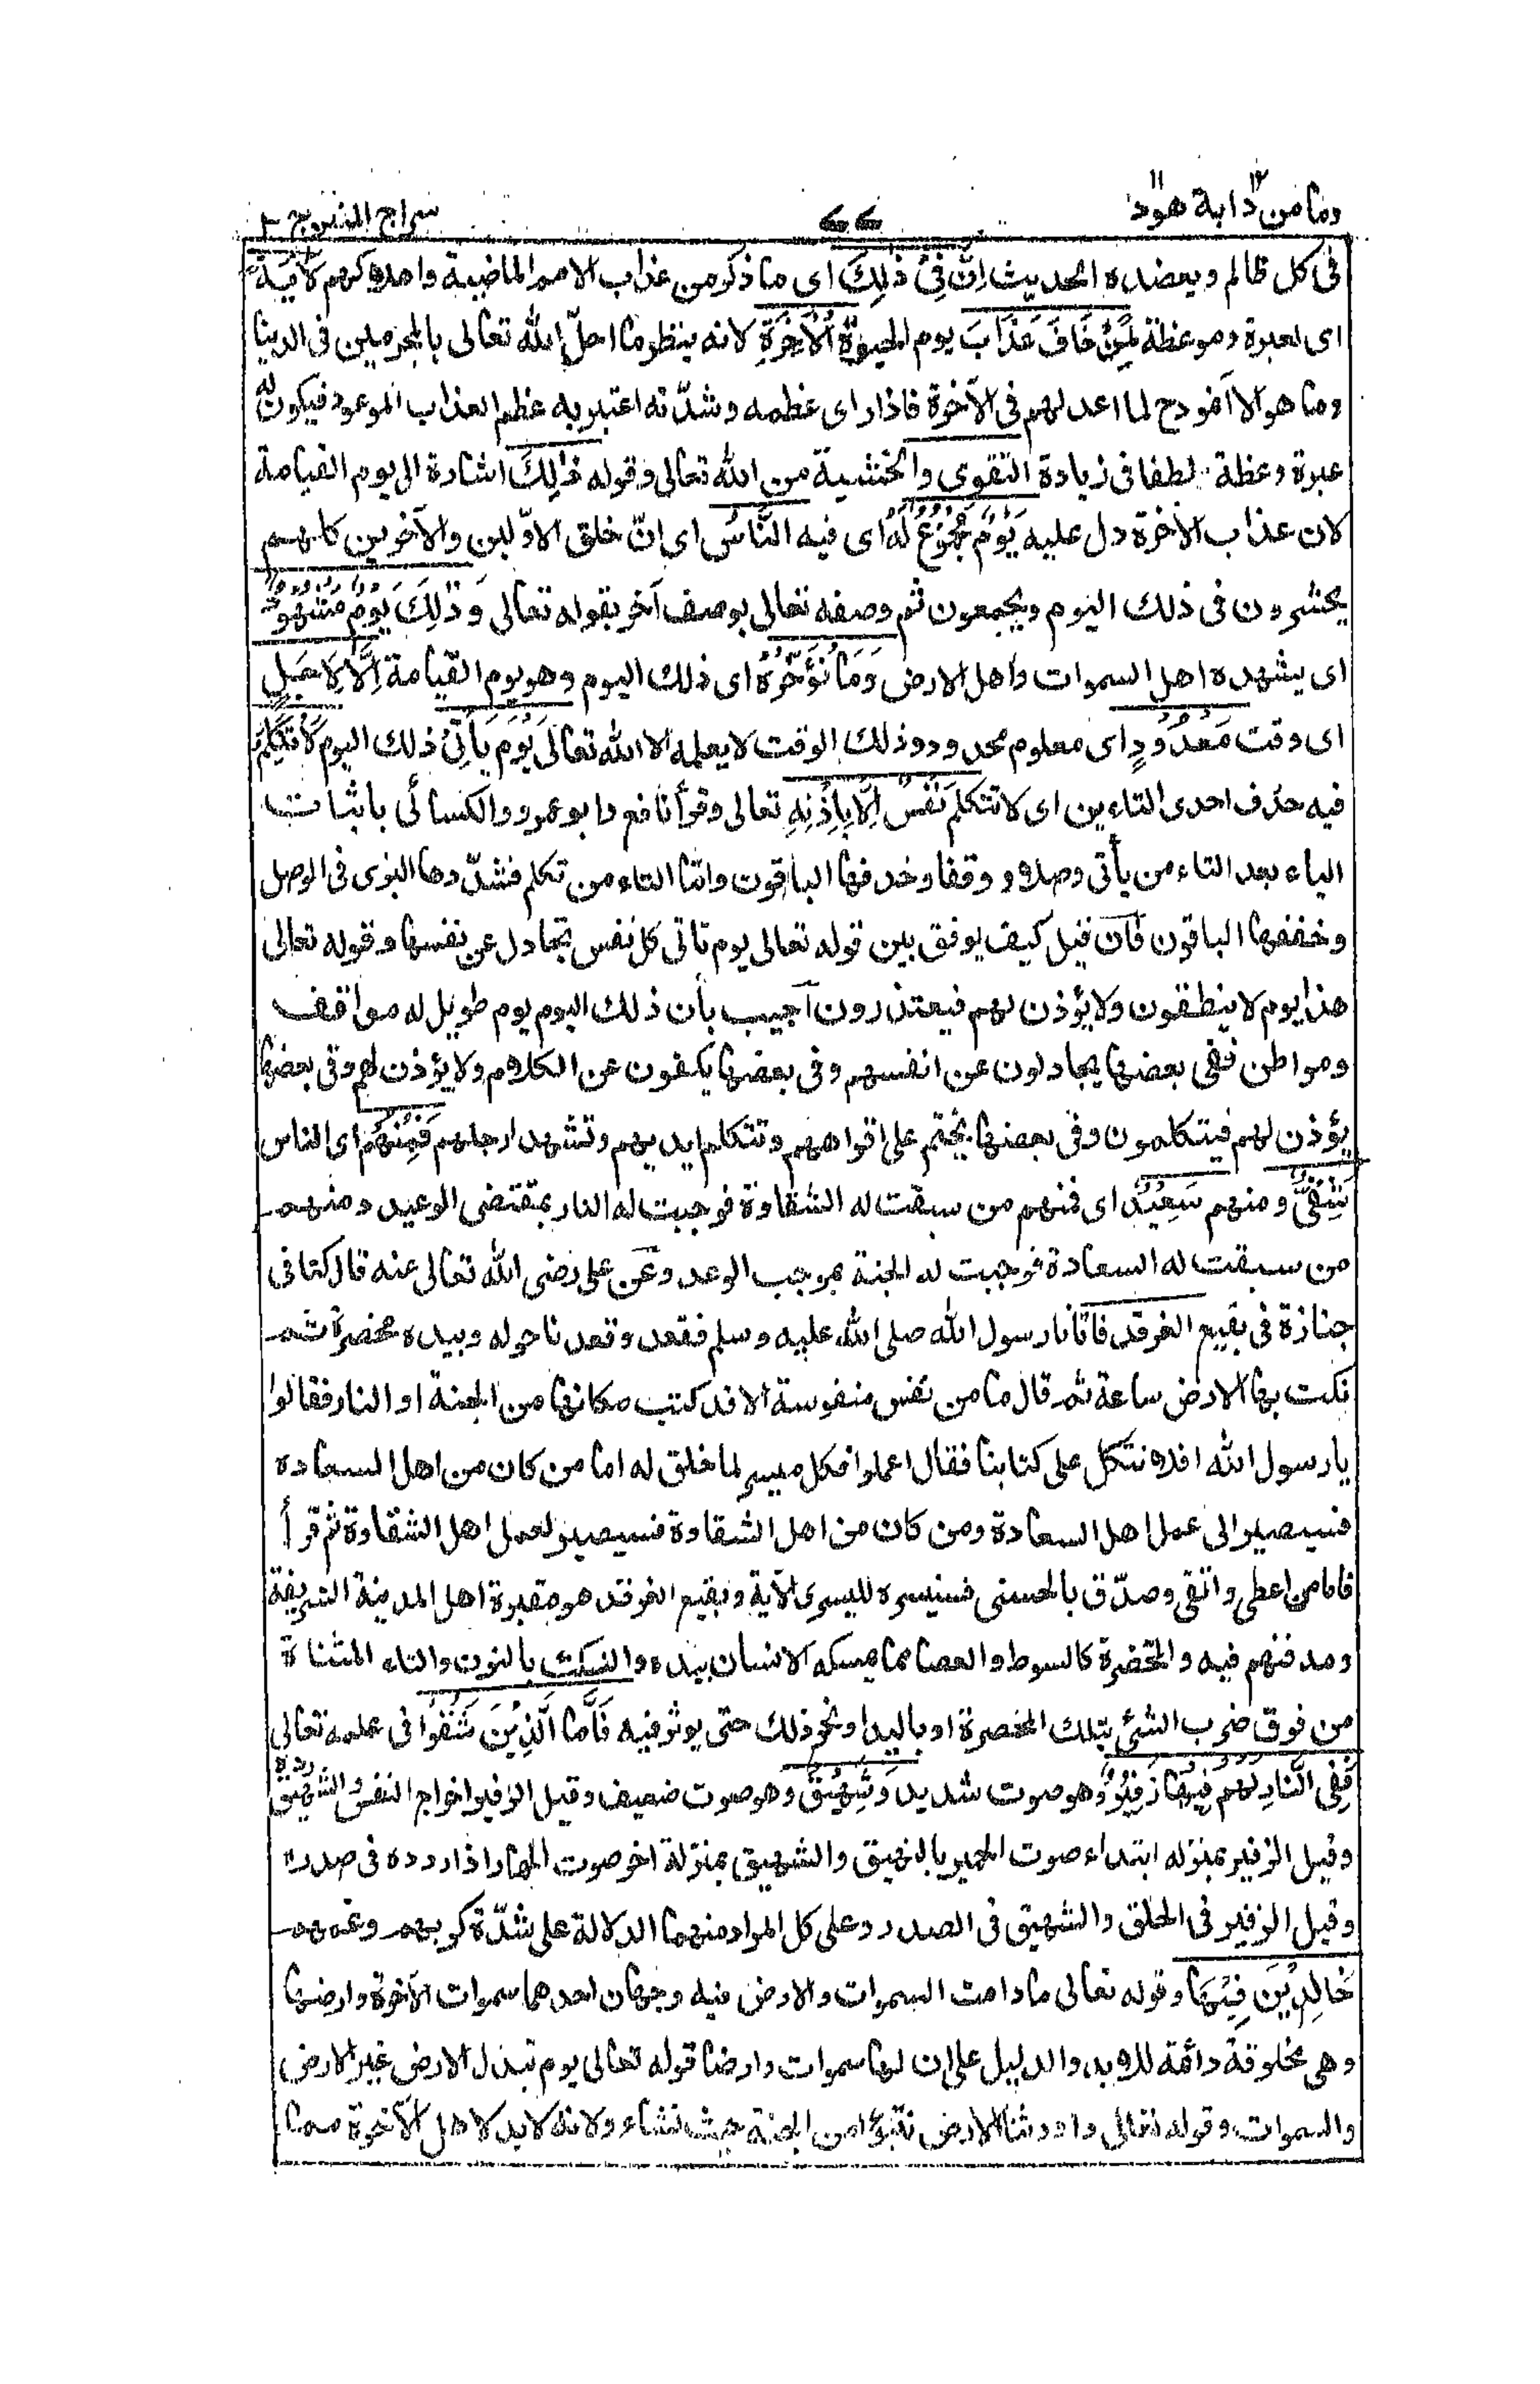 وما من دابة ١٢ هود ١١
٧٧
سراج المنير ج ٢
فى كل ظالم ويعضده الحديث اِنَّ فِىْ ذٰلِكَ اى ما ذكر من عذاب الامم الماضية واهلاكهم لَاٰيَةً
اى لعبرة وموعظة لِّمَنْ خَافَ عَذَابَ يوم الحيوة الْاٰخِرَةِ لانه ينظر ما احلّ الله تعالى بالمجرمين فى الدينا
وما هو الا انموذج لما اعد لهم فى الآخرة فاذا راى عظمه وشدّته اعتبر به عظم العذاب الموعود فيكون له
عبرة وعظة لطفا فى زيادة التقوى والخشية من الله تعالى وقوله ذٰلِكَ اشارة الى يوم القيامة
لان عذاب الآخرة دل عليه يَوْمٌ مَّجْمُوْعٌ لَّهُ اى فيه النَّاسُ اى انّ خلق الاوّلين والآخرين كلهم
يحشرون فى ذلك اليوم ويجمعون ثم وصفه تعالى بوصف آخر بقوله تعالى وَذٰلِكَ يَوْمٌ مَّشْهُوْدٌ
اى يشهده اهل السموات واهل الارض وَمَا نُؤَخِّرُهٗ اى ذلك اليوم وهو يوم القيامة اِلَّا لِاَجَلٍ
اى وقت مَّعْدُوْدٍ اى معلوم محدود وذلك الوقت لا يعلمه الا الله تعالى يَوْمَ يَاْتِىْ ذلك اليوم لَا تَكَلَّمُ
فيه حذف احدى التاءين اى لا تتكلم نَفْسٌ اِلَّا بِاِذْنِهٖ تعالى وقرأ نافع وابو عمرو والكسائى باثبات
الياء بعد التاء من يأتى وصلا ووقفا وحذفها الباقون واما التاء من تكلم فشدّدها البزى فى الوصل
وخففها الباقون فان قيل كيف يوفق بين قوله تعالى يوم تاتى كل نفس تجادل عن نفسها وقوله تعالى
هذا يوم لا ينطقون ولا يؤذن لهم فيعتذرون اجيب بأن ذلك اليوم يوم طويل له مواقف
ومواطن ففى بعضها يجادلون عن انفسهم وفى بعضها يكفون عن الكلام ولا يؤذن لهم وفى بعضها
يؤذن لهم فيتكلمون وفى بعضها يختم على افواههم وتتكلم ايديهم وتشهد ارجلهم فَمِنْهُمْ اى الناس
شَقِىٌّ ومنهم سَعِيْدٌ اى فمنهم من سبقت له الشقاوة فوجبت له النار بمقتضى الوعيد ومنهم
من سبقت له السعادة فوجبت له الجنة بموجب الوعد وعن على رضى الله تعالى عنه قال كنا فى
جنازة فى بقيع الغرقد فاتانا رسول الله صلى الله عليه وسلم فقعد وقعدنا حوله وبيده مخصرة ثم
نكت بها الارض ساعة ثم قال ما من نفس منفوسة الا قد كتب مكانها من الجنة او النار فقالوا
يا رسول الله افلا نتكل على كتابنا فقال اعملوا فكل ميسر لما خلق له اما من كان من اهل السعاده
فسيصير الى عمل اهل السعادة ومن كان من اهل الشقاوة فسيصير لعمل اهل الشقاوة ثم قرأ
فاما من اعطى واتقى وصدّق بالحسنى فسنيسره لليسرى الآية وبقيع الغرقد هو مقبرة اهل المدينة الشريفة
ومدفنهم فيه والمخصرة كالسوط والعصا مما يمسكه الانسان بيده والنكت بالنون والتاء المثناة
من فوق ضرب الشئ بتلك المخصرة او باليد او نحو ذلك حتى يوثر فيه فَاَمَّا الَّذِيْنَ شَقُوْا فى علمه تعالى
فَفِى النَّارِ لَهُمْ فِيْهَا زَفِيْرٌ وهو صوت شديد وَّشَهِيْقٌ وهو صوت ضعيف وقيل الزفير اخراج النفس والشهيق رده
وقيل الزفير بمنزله ابتداء صوت الحمير بالنهيق والشهيق بمنزلة اخر صوت الحمار اذا ردده فى صدره
وقيل الزفير فى الحلق والشهيق فى الصدر وعلى كل المراد منهما الدلالة على شدّة كربهم وغمهم
خٰلِدِيْنَ فِيْهَا وقوله تعالى ما دامت السموات والارض فيه وجهان احدهما سموات الآخرة وارضها
وهى مخلوقة دائمة للابد والدليل على ان لها سموات وارضا قوله تعالى يوم تبدل الارض غير الارض
والسموات وقوله تعالى واورثنا الارض نتبؤا من الجنة حيث نشاء ولانه لا بد لاهل الآخرة مما